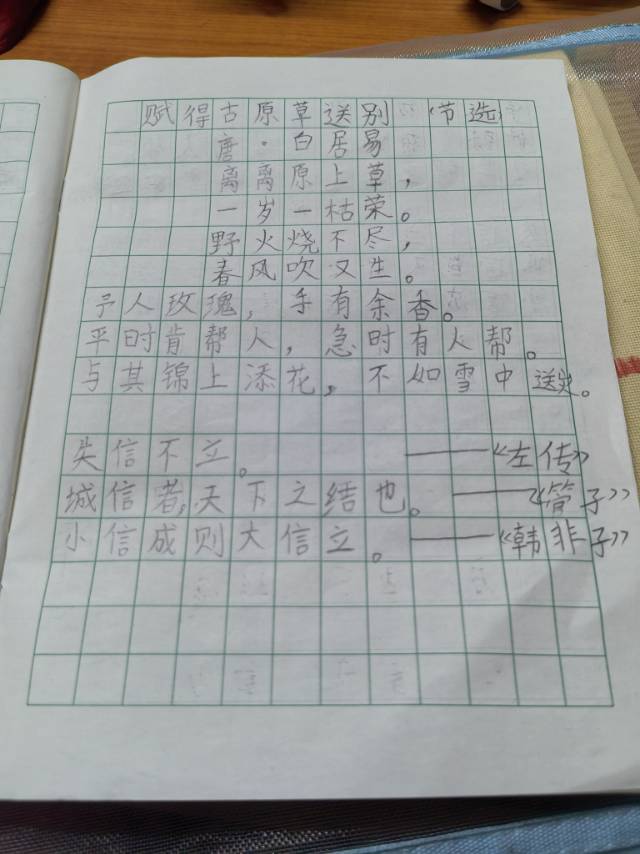 赋得古原草送别 (节选
唐·白居易
离离原上草，
一岁一枯荣。
野火烧不尽，
春风吹又生。
予人玫瑰，手有余香。
平时肯帮人，急时有人帮。
与其锦上添花，不如雪中送炭。
失信不立。——《左传》
城信者,天下之结也。——《管子》
小信成则大信立。——《韩非子》